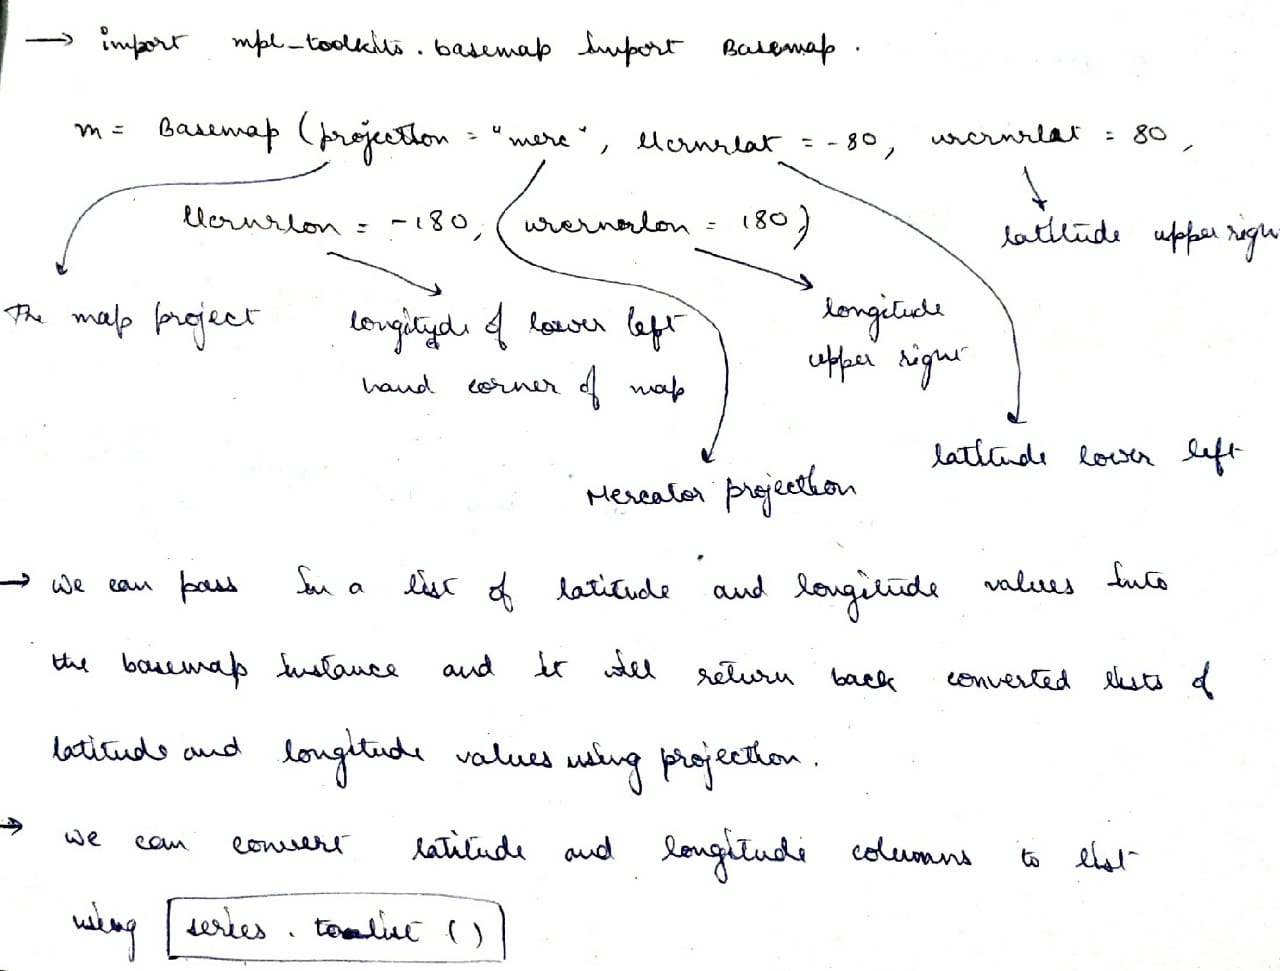 → import mpl_toolkits.basemap import Basemap.
m = Basemap (projection = "merc", llcrnrlat = -80, urcrnrlat = 80,
llcrnrlon = -180, urcrnrlon = 180)
latitude upper righ
The map project
longitude of lower left
hand corner of map
longitude
upper right
latitude lower left
Mercator projection
→ We can pass in a list of latitude and longitude values into
the basemap instance and it will return back converted lists of
latitude and longitude values using projection.
→ we can convert latitude and longitude columns to list
using series.tolist ()